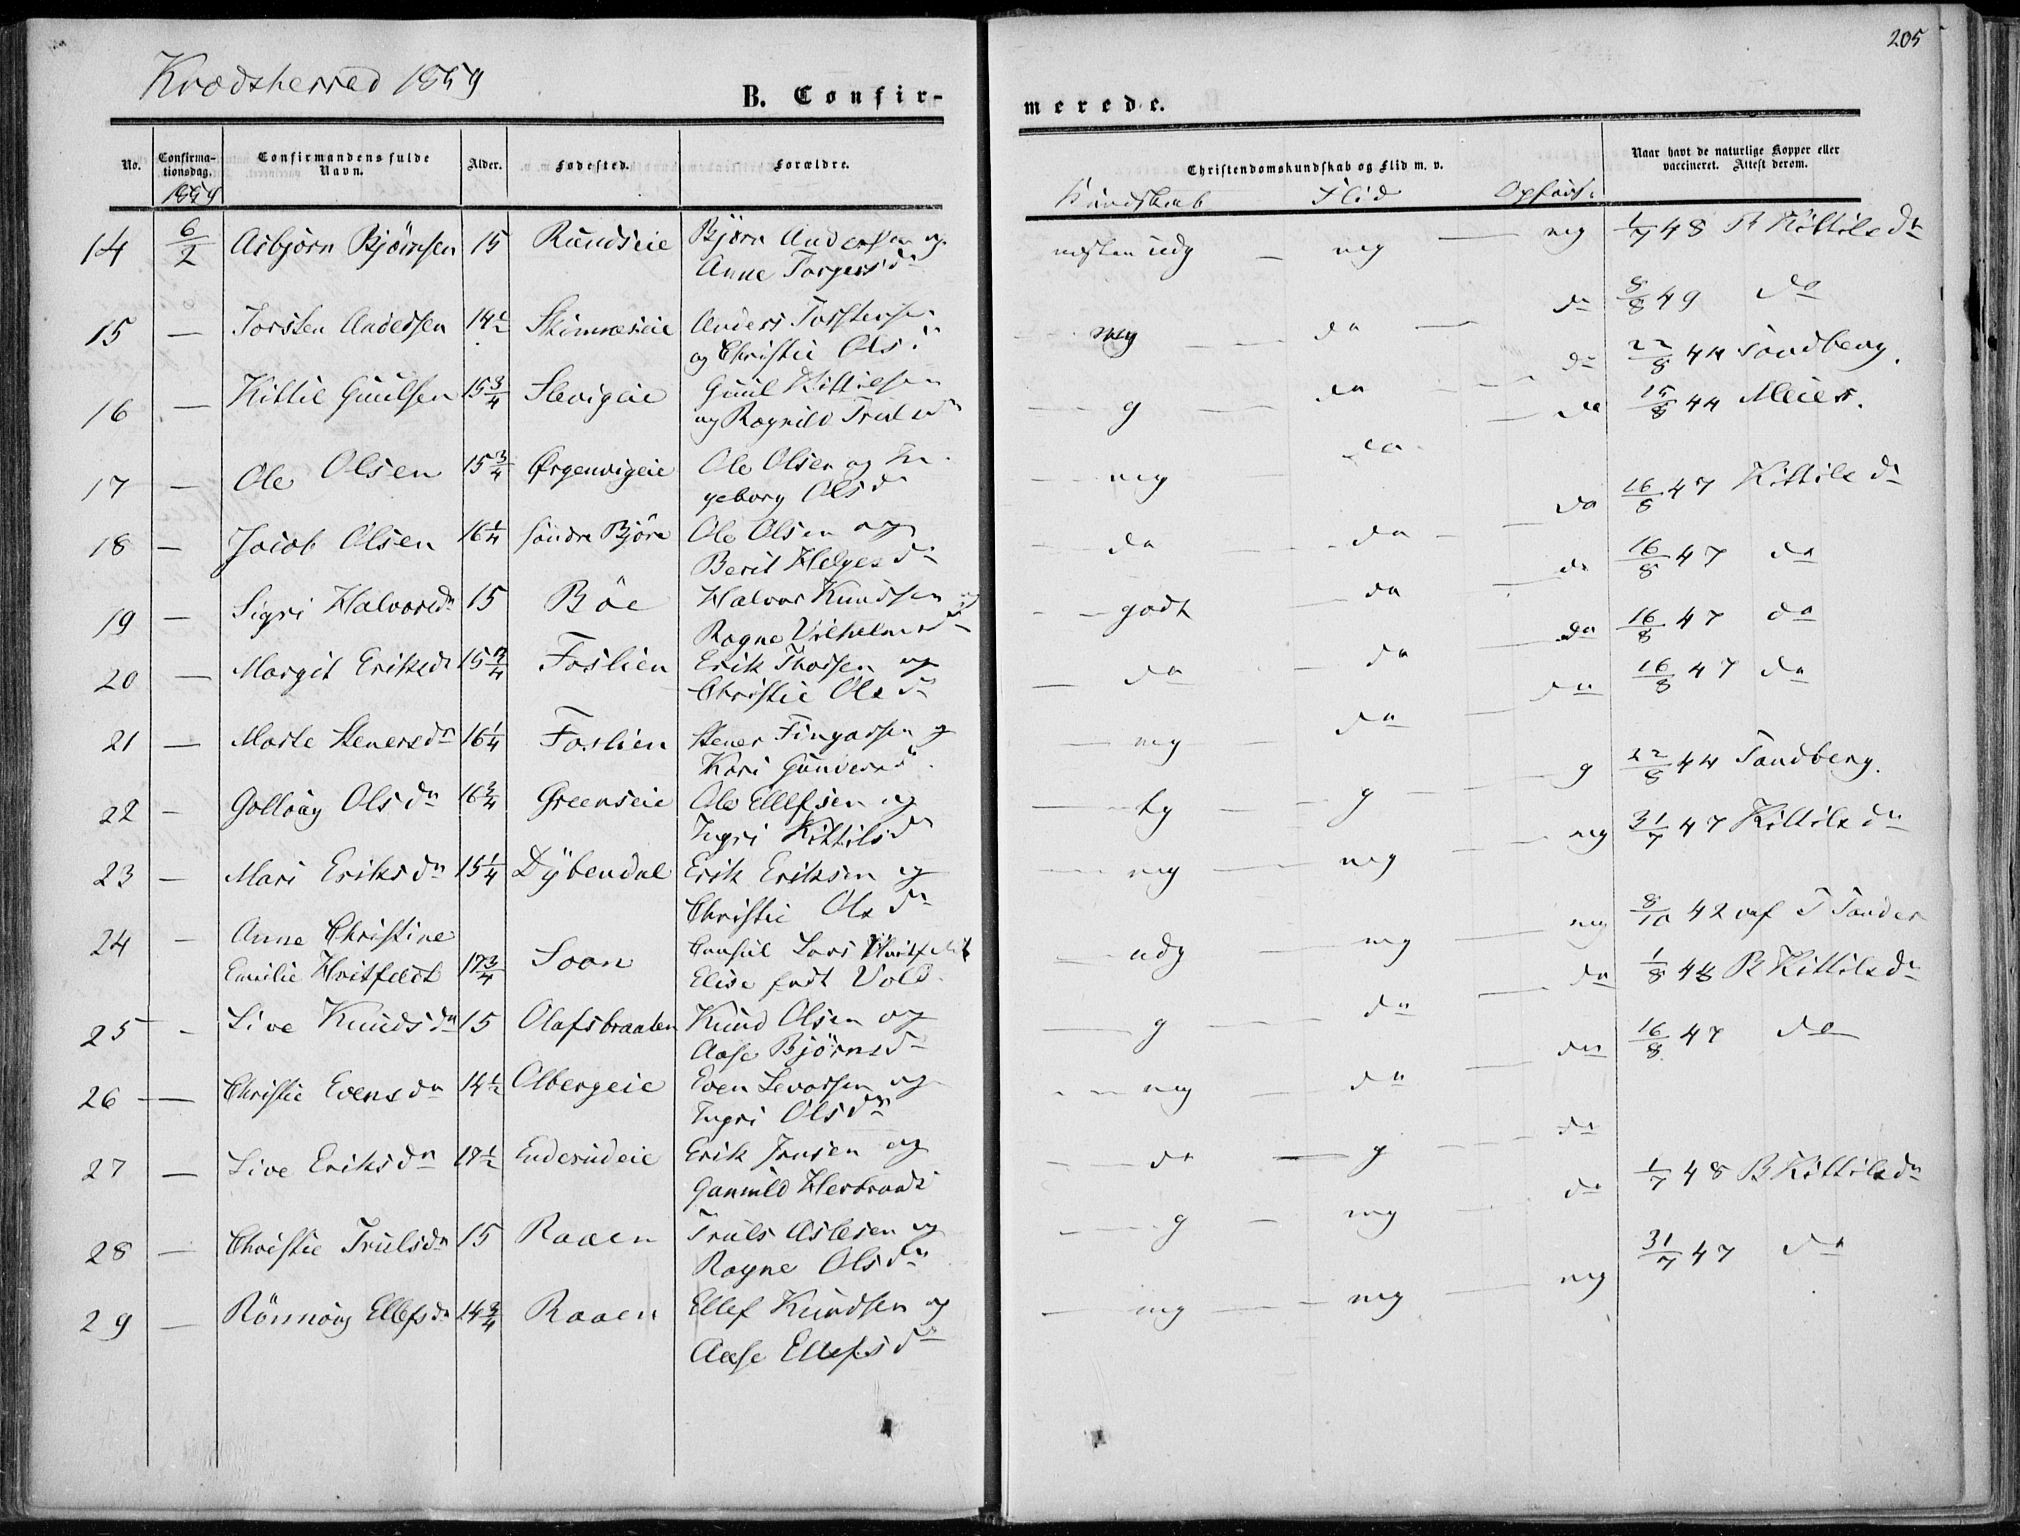 205
Krødsherred 1859
B. Confir-
merede.
No.
Confirma-
tionsdag.
Confirmandens fulde
Navn.
Alder.
Fødested.
Forældre.
Christendomskundskab og Flid m. v.
Naar havt de naturlige Kopper eller
vaccineret. Attest derom.
1859
Kundskab Flid Opførs.
14 6/2 Asbjørn Bjørnsen 15 Rundseie Bjørn Andersen og
Anne Torgersdr
næsten udg — mg — mg 1/7 48 Kittilsdr
15 — Torsten Andersen 14½ Skinneseie Anders Torstensen
og Christie Olsd
mg — do — do 8/8 49 do
16 — Kittil Guulsen 15¾ Slevigeie Guul Kittilsen
og Ragnild Trulsd
g — do — do 22/8 44 Sandberg.
17 — Ole Olsen 15¾ Ørgenvigeie Ole Olsen og In-
geborg Olsdr
mg — do — do 15/8 44 Meier.
18 — Jacob Olsen 16¼ søndre Bjøre Ole Olsen og
Berit Helgesdr
do — do — do 16/8 47 Kittilsdr
19 — Sigri Halvorsdr 15 Böe Halvor Knudsen og
Ragne Vilhelmsdr
godt — do — do 16/8 47 do
20 — Margit Eriksdr 15¾ Foslien Erik Thorsen og
Christie Olsdr
do — do — do 16/8 47 do
21 — Marte Stenersdr 16¼ Foslien Stener Fingarsen og
Kari Gundersd
mg — do — do 16/8 47 do
22 — Golløug Olsdr 16¾ Greenseie Ole Ellefsen og
Ingri Kittilsdr
tg — g — g 22/8 44 Sandberg.
23 — Mari Eriksdr 15¼ Dybendal Erik Eriksen og
Christie Olsdr
mg — mg — mg 31/7 47 Kittilsdr
24 — Anne Christine
Emilie Hvitfeldt 17¾ Soon Consul Lars Hvitfeldt
Elise født Vold.
udg — mg — mg 8/10 42 af T Sander
25 — Live Knudsdr 15 Olafsbraaten Knud Olsen og
Aase Bjørnsdr
g — do — do 1/8 48 B Kittilsdr
26 — Christie Evensdr 14½ Olbergeie Even Levorsen og
Ingri Olsdr
mg — do — do 16/8 47 do
27 — Live Eriksdr 17½ Enderudeie Erik Jensen og
Gunnild Herbrandsd
do — g — do
28 — Christie Trulsdr 15 Raaen Truls Aslesen og
Ragne Olsdr
g — mg — do 1/7 48 B Kittilsdr
29 — Rönnoug Ellefsdr 14¾ Raaen Ellef Knudsen og
Aase Ellefsdr
mg — mg — mg 31/7 47 do